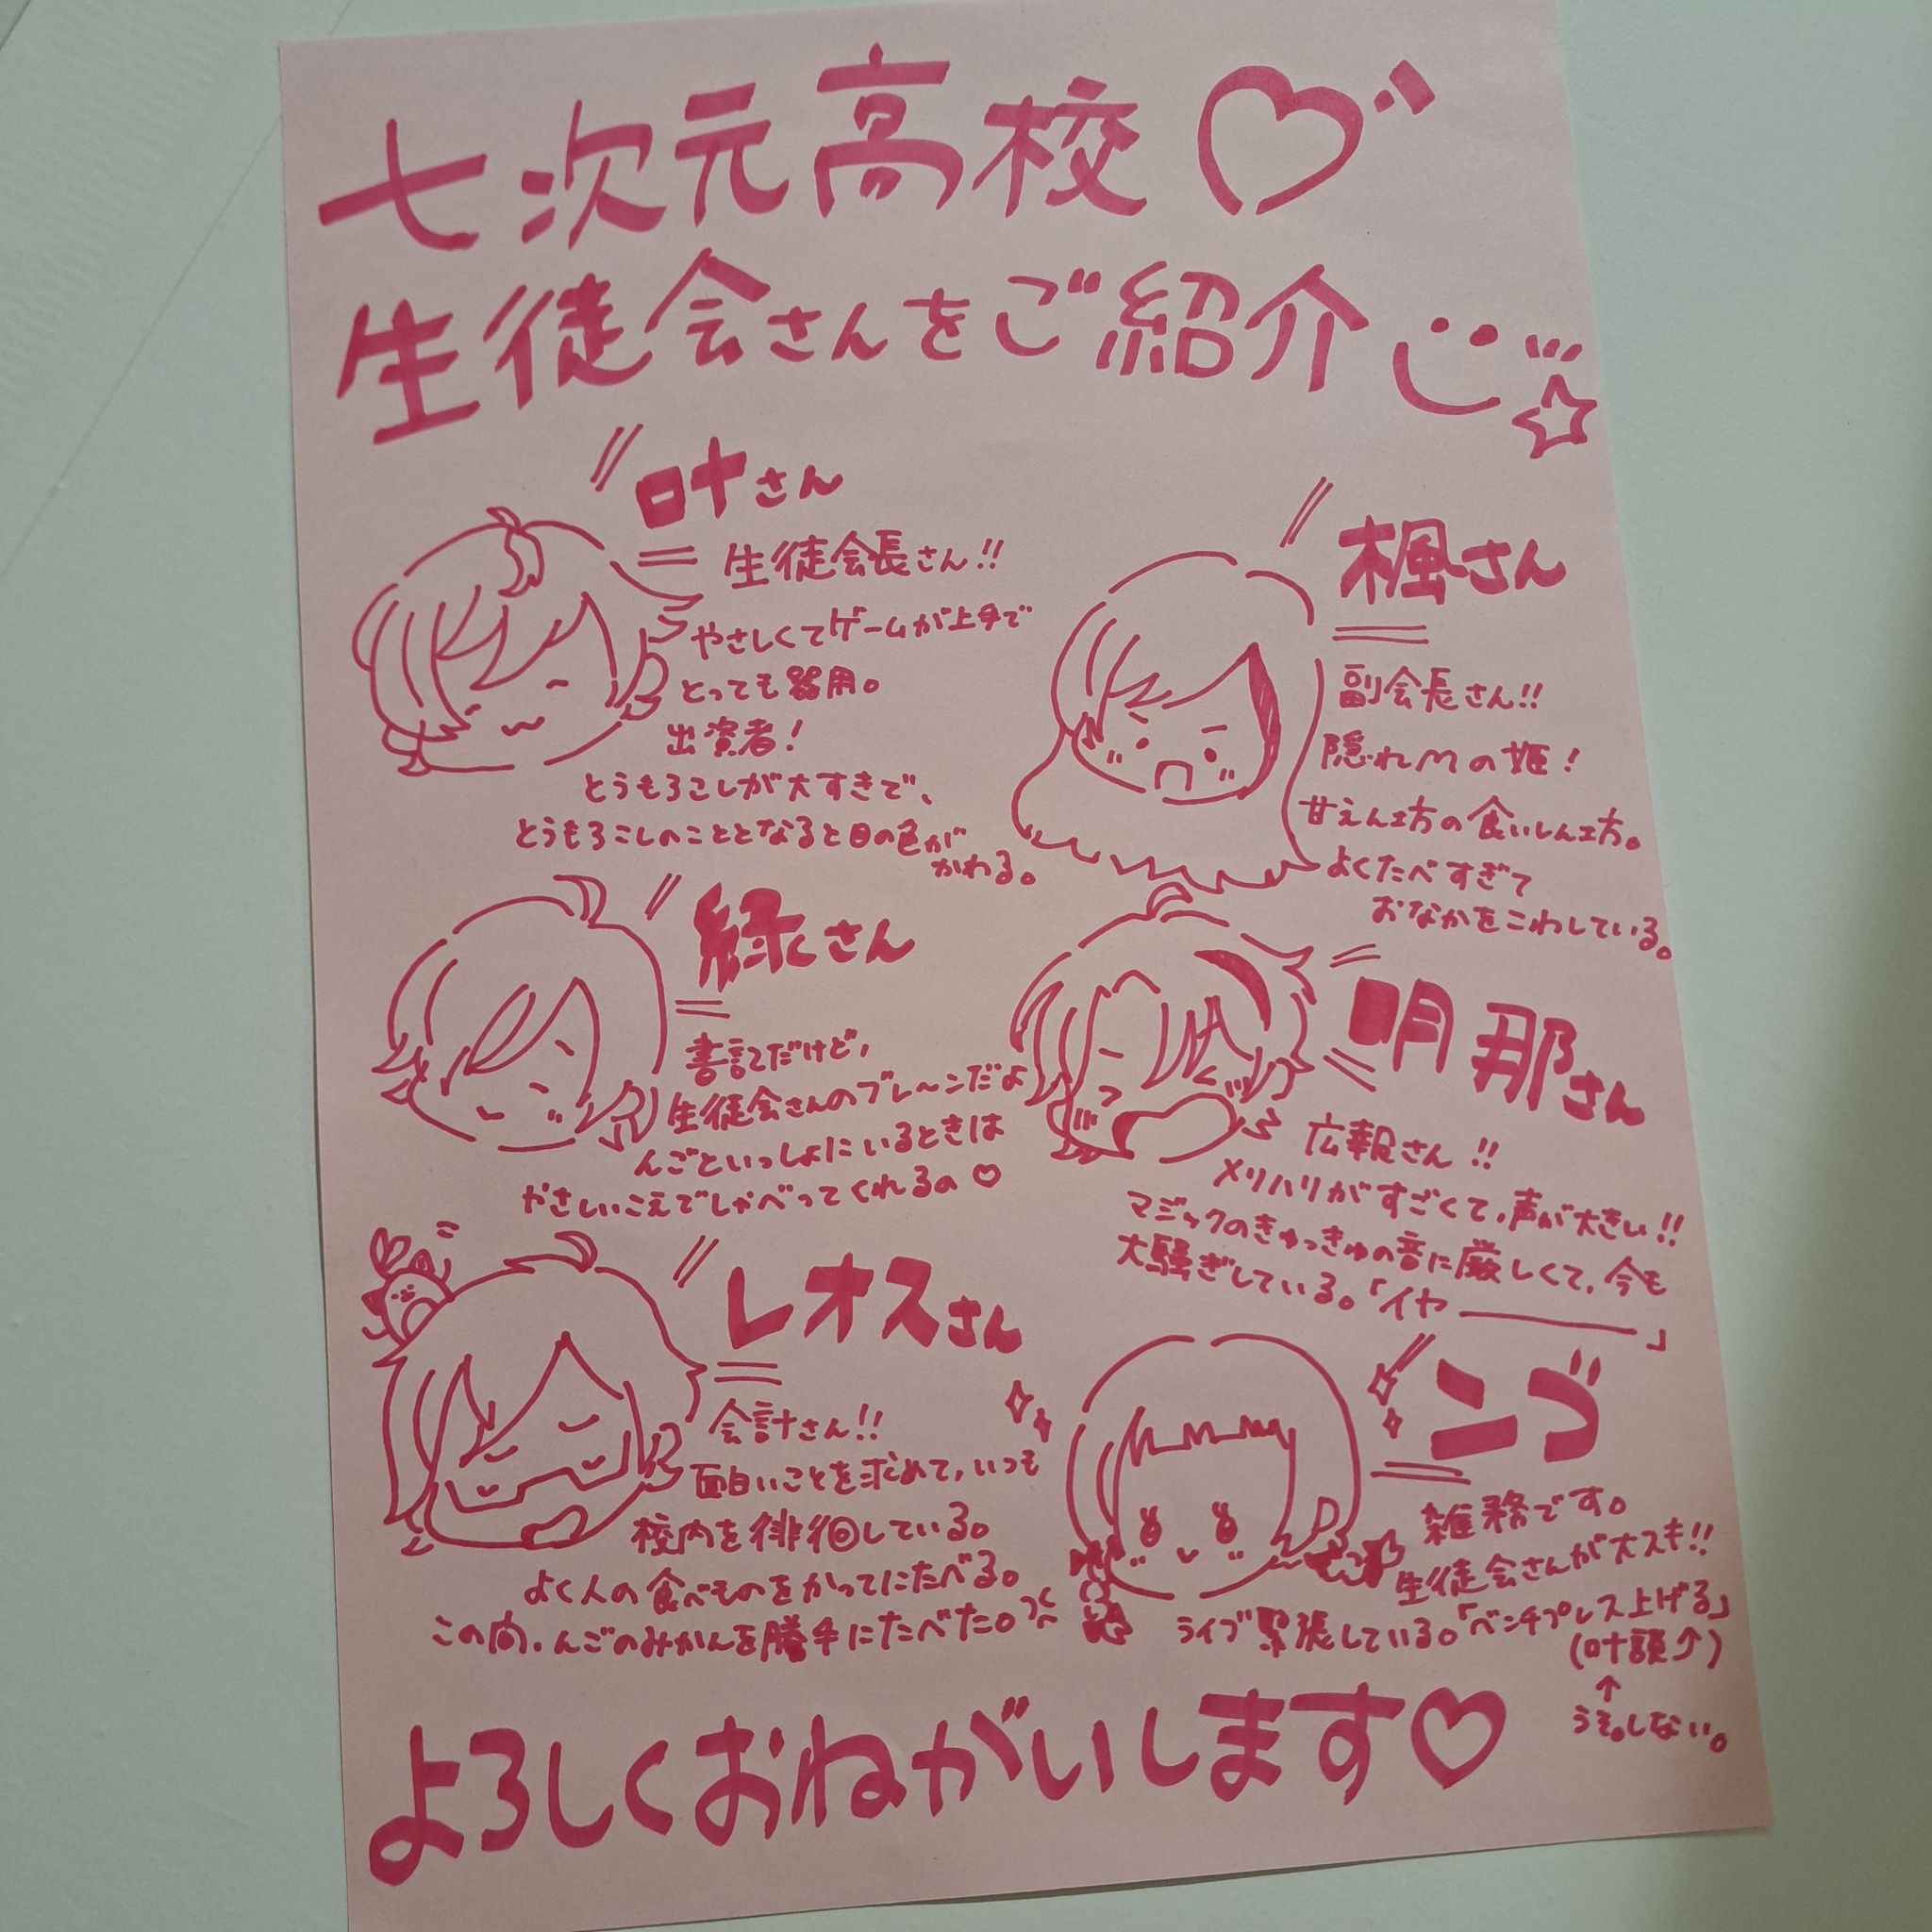 七次元高校♡
生徒会さんをご紹介
叶さん
生徒会長さん!!
やさしくてゲームが上手で
とっても器用。
出演者!
とうもろこしが大すきで、
とうもろこしのこととなると目の色が
かわる。
楓さん
副会長さん!!
隠れMの姫!
甘えん坊の食いしん坊。
よくたべすぎて
おなかをこわしている。
緑さん
書記だけど,
生徒会さんのブレ〜ンだよ
んごといっしょにいるときは
やさしいこえでしゃべってくれるの♡
明那さん
広報さん!!
メリハリがすごくて,声が大きい!!
マジックのきゅっきゅの音に厳しくて,今も
大騒ぎしている。「イヤ―――」
レオスさん
会計さん!!
面白いことを求めて,いつも
校内を徘徊している。
よく人の食べものをかってにたべる。
この間,んごのみかんを勝手にたべた。
ンゴ
雑務です。
生徒会さんが大スキ!!
ライブ緊張している。「ベンチプレス上げる」
(叶談↑)
↑
うそ。しない。
よろしくおねがいします♡